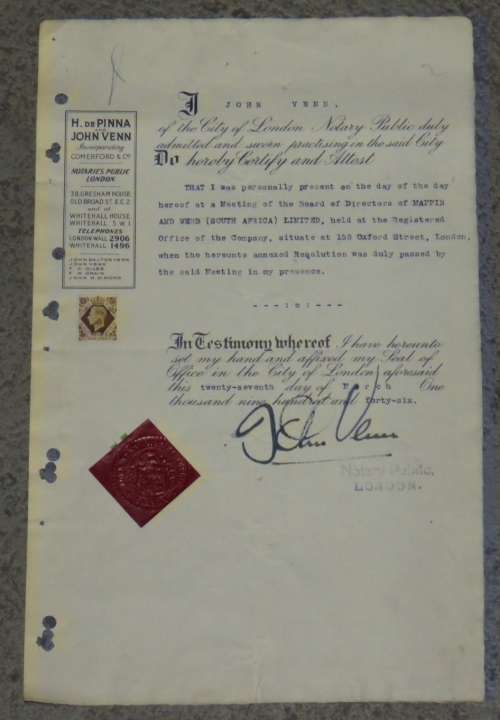 H. DE PINNA
AND
JOHN VENN
Incorporating
COMERFORD & Co
NOTARIES PUBLIC
LONDON.
38, GRESHAM HOUSE,
OLD BROAD ST. E.C.2
and at
WHITEHALL HOUSE,
WHITEHALL S.W.1
TELEPHONES
LONDON WALL 2906
WHITEHALL 1496
I JOHN VENN,
of the City of London Notary Public duly
admitted and sworn practising in the said City
Do hereby Certify and Attest
THAT I was personally present on the day of the day
hereof at a Meeting of the Board of Directors of MAPPIN
AND WEBB (SOUTH AFRICA) LIMITED, held at the Registered
Office of the Company, situate at 158 Oxford Street, London,
when the hereunto annexed Resolution was duly passed by
the said Meeting in my presence.
In Testimony whereof I have hereunto
set my hand and affixed my Seal of
Office in the City of London aforesaid
this twenty-seventh day of March One
thousand nine hundred and forty-six.
John Venn
Notary Public,
LONDON.